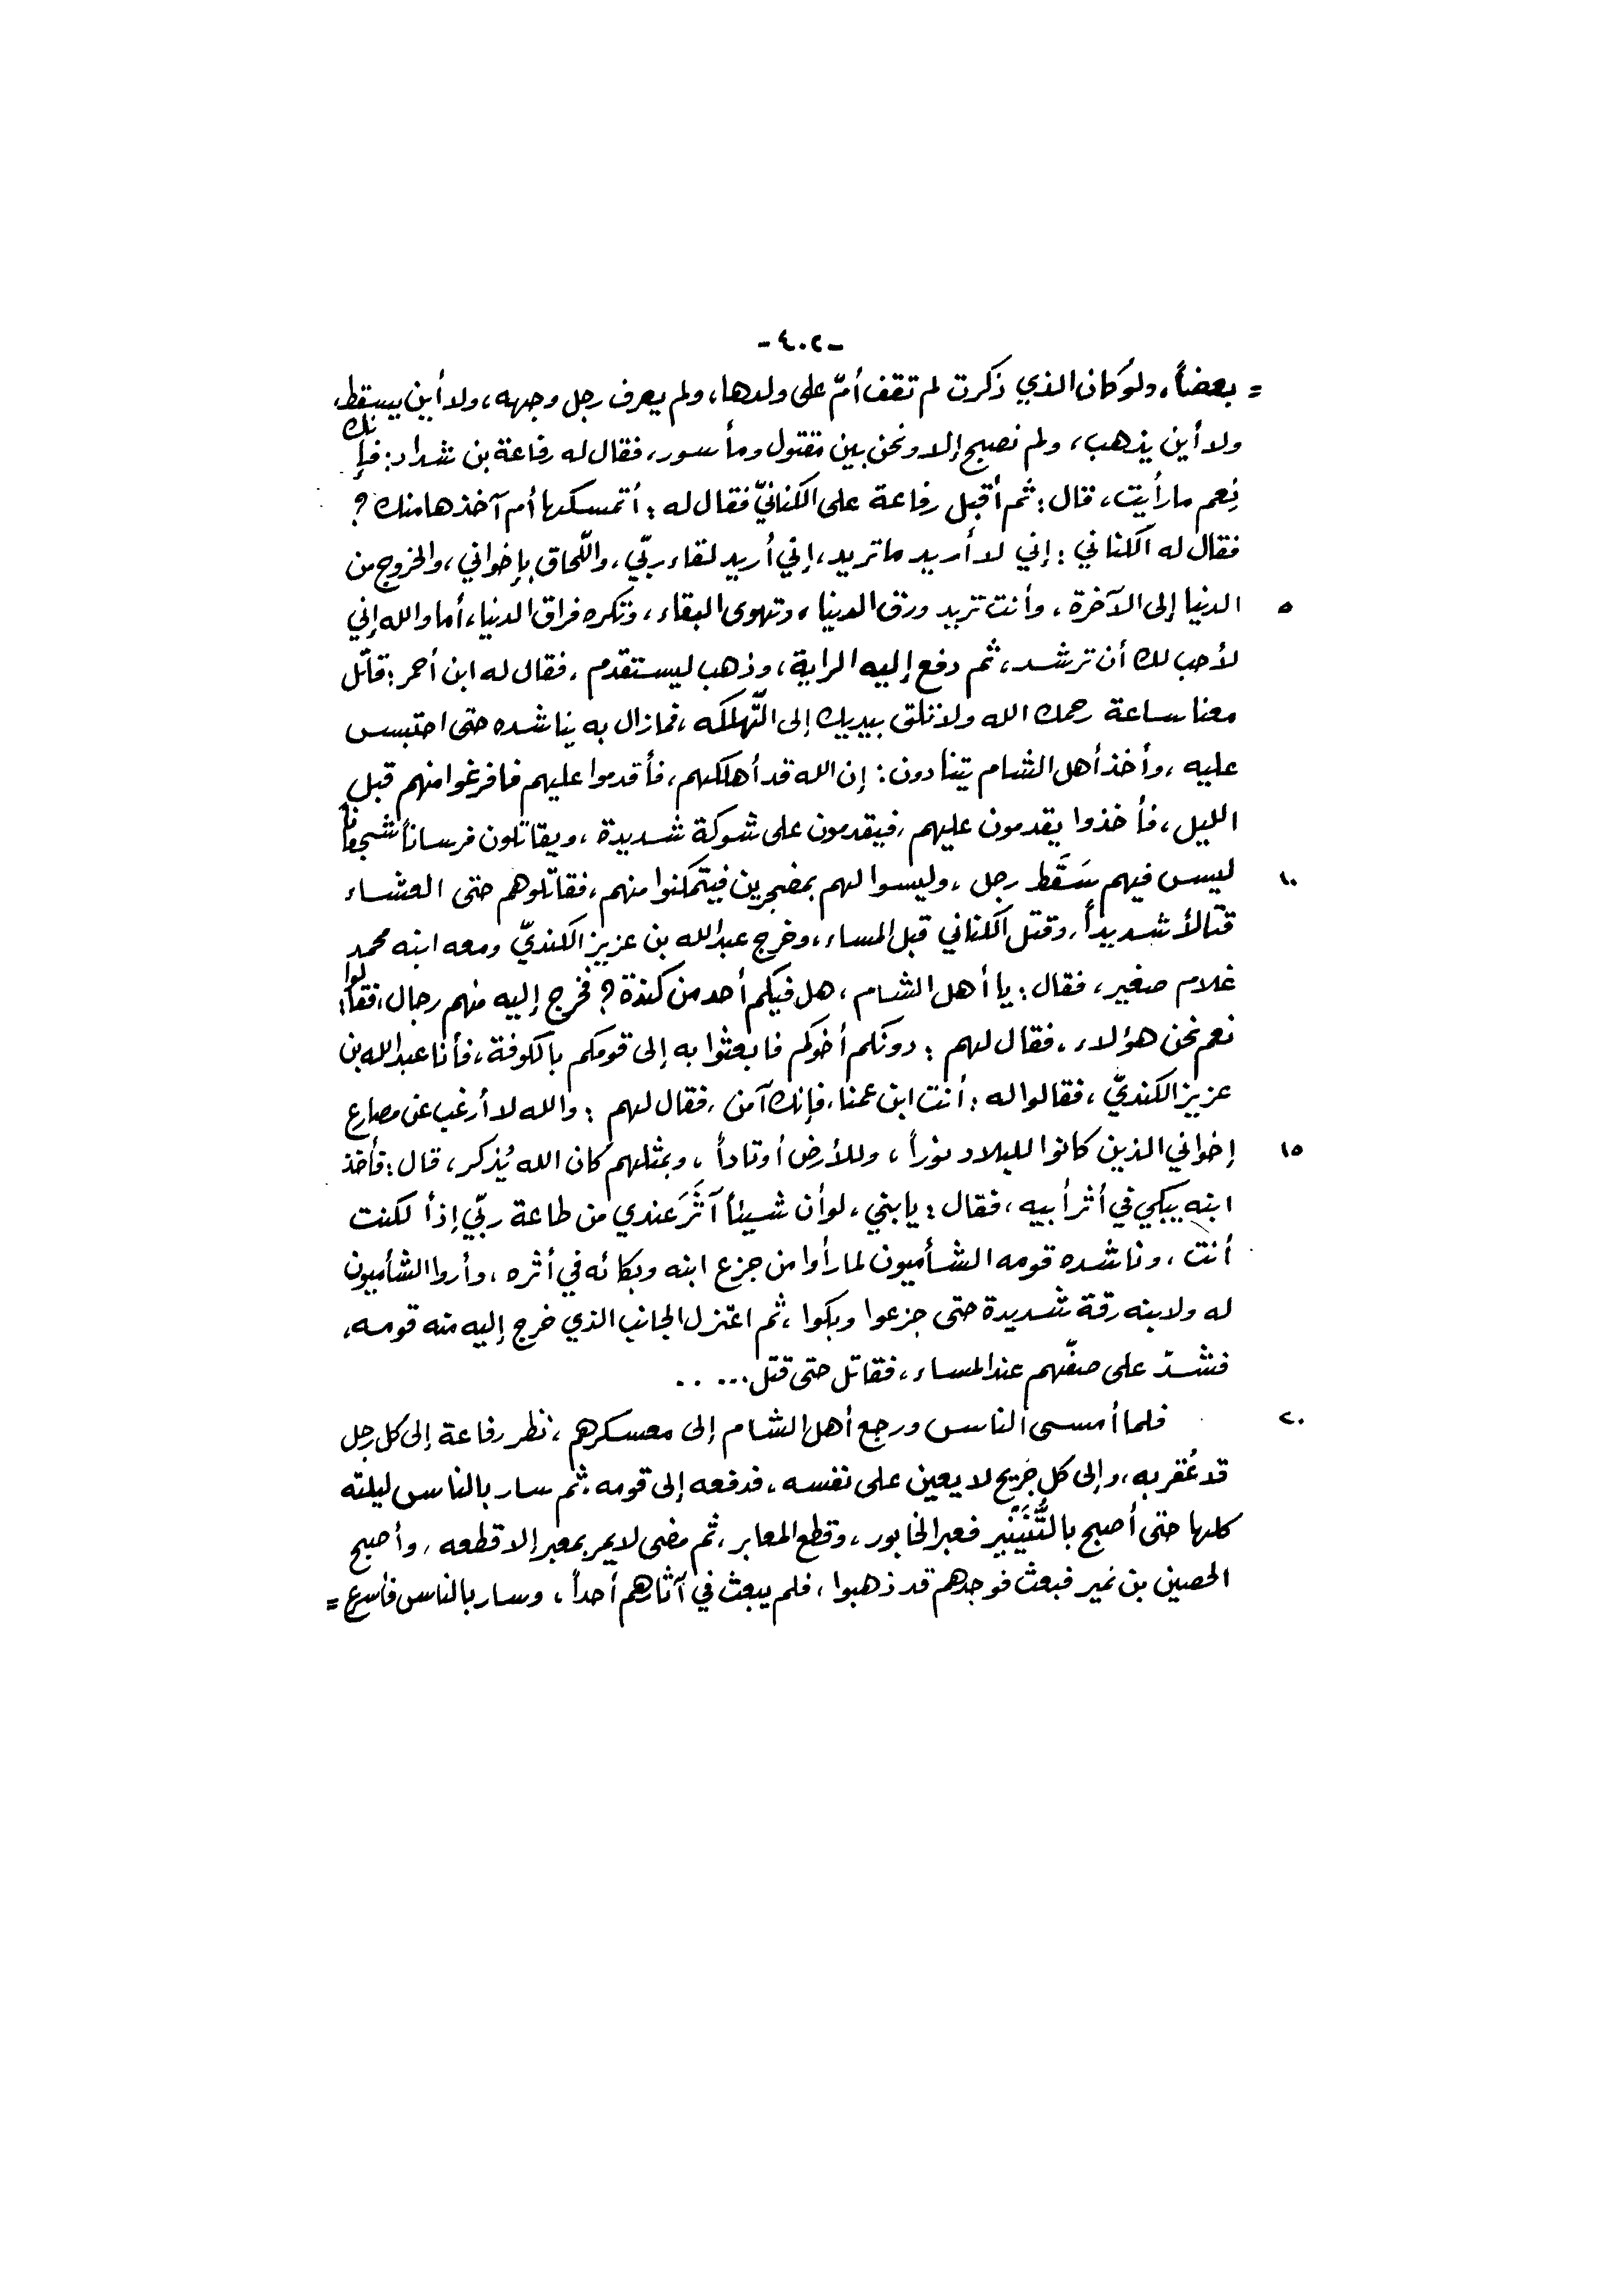 -٤٠٢-
= بعضاً، ولو كان الذي ذكرت لم تقف أمّ على ولدها، ولم يعرف رجل وجهه، ولا أين يسقط،
ولا أين يذهب، ولم نصبح إلا ونحن بين مقتول ومأسور، فقال له رفاعة بن شداد: فإنك
نِعم ما رأيت، قال: ثم أقبل رفاعة على الكنانيّ فقال له: أتمسكها أم آخذها منك؟
فقال له الكناني: إني لا أريد ما تريد، إني أريد لقاء ربّي، واللّحاق بإخواني، والخروج من
٥ الدنيا إلى الآخرة، وأنت تريد ورق الدنيا، وتهوى البقاء، وتكره فراق الدنيا، أما والله إني
لأحب لك أن ترشد، ثم دفع إليه الراية، وذهب ليستقدم، فقال له ابن أحمر: قاتل
معنا ساعة رحمك الله ولا تلق بيديك إلى التّهلكه، فمازال به يناشده حتى احتبس
عليه، وأخذ أهل الشام يتنادون: إن الله قد أهلكهم، فأقدموا عليهم فافرغوا منهم قبل
الليل، فأخذوا يقدمون عليهم، فيقدمون على شوكة شديدة، ويقاتلون فرساناً شجعاناً
١٠ ليس فيهم سَقَط رجل، وليسوا لهم بمضجرين فيتمكنوا منهم، فقاتلوهم حتى العشاء
قتالاً شديداً، وقتل الكناني قبل المساء، وخرج عبدالله بن عزيز الكنديّ ومعه ابنه محمد
غلام صغير، فقال: يا أهل الشام، هل فيكم أحد من كندة؟ فخرج إليه منهم رجال، فقالوا:
نعم نحن هؤلاء، فقال لهم: دونكم أخوكم فابعثوا به إلى قومكم بالكوفة، فأنا عبدالله بن
عزيز الكنديّ، فقالوا له: أنت ابن عمنا، فإنك آمن، فقال لهم: والله لا أرغب عن مصارع
١٥ إخواني الذين كانوا للبلاد نوراً، وللأرض أوتاداً، وبمثلهم كان الله يُذكر، قال: فأخذ
ابنه يبكي في أثر أبيه، فقال: يا بني، لو أن شيئاً آثَرَ عندي من طاعة ربّي إذاً لكنت
أنت، وناشده قومه الشأميون لما رأوا من جزع ابنه وبكائه في أثره، وأروا الشأميون
له ولابنه رقة شديدة حتى جزعوا وبكوا، ثم اعتزل الجانب الذي خرج إليه منه قومه،
فشدّ على صفّهم عند المساء، فقاتل حتى قتل.....
٢٠ فلما أمسى الناس ورجع أهل الشام إلى معسكرهم، نظر رفاعة إلى كل رجل
قد عُقر به، وإلى كل جَريح لا يعين على نفسه، فدفعه إلى قومه، ثم سار بالناس ليلته
كلها حتى أصبح بالتُّنَيْنِير فعبر الخابور، وقطع المعابر، ثم مضى لا يمر بمعبر إلا قطعه، وأصبح
الحصين بن نمير فبعث فوجدهم قد ذهبوا، فلم يبعث في آثارهم أحداً، وسار بالناس فأسرع =